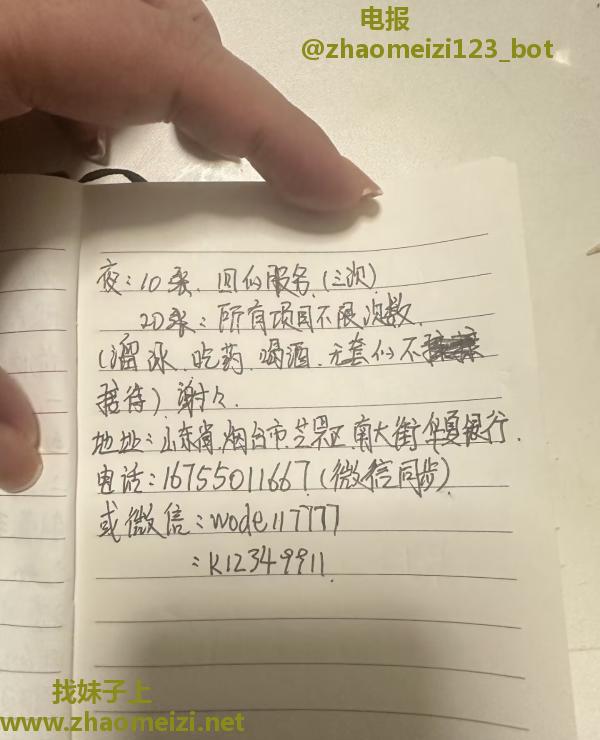 电报
@zhaomeizi123_bot
夜：10张. 服务.(三次)
20张：所有项目不限次数.
(溜冰.吃药.喝酒.无套的不
接待)谢谢.
地址：山东省.烟台市.芝罘区.南大街华夏银行.
电话：16755011667(微信同步)
或微信：wode117777
：K12349911.
找妹子上
www.zhaomeizi.net